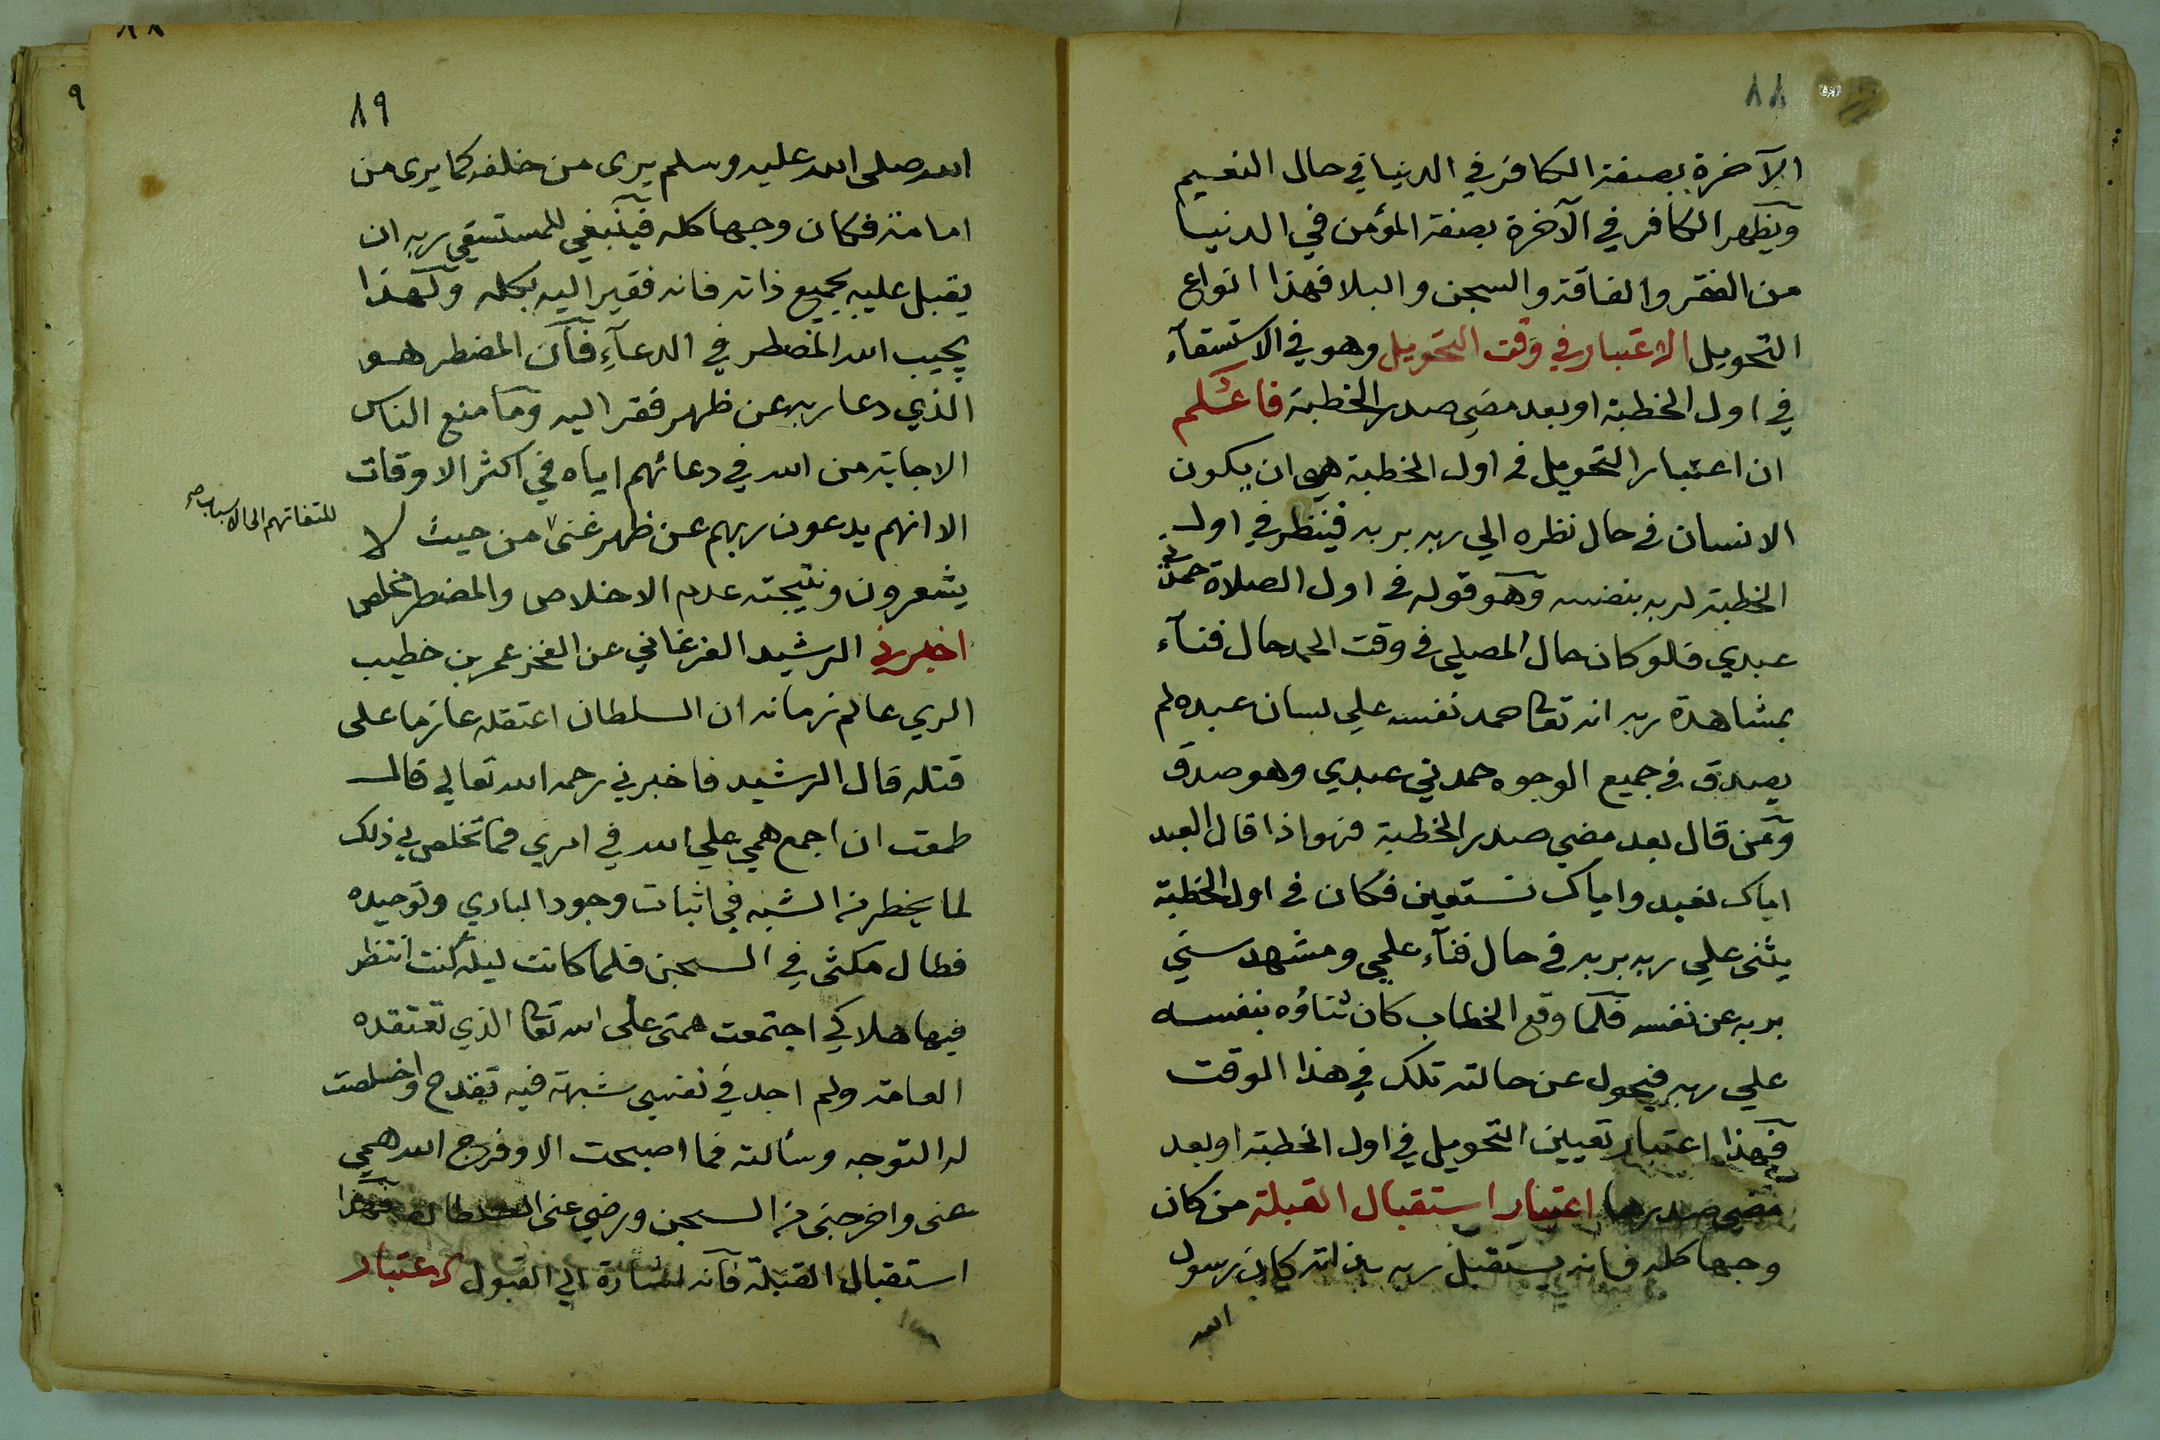 ٨٨
الآخرة بصفة الكافر في الدنيا في حال النعيم
ويظهر الكافر في الآخرة بصفة المؤمن في الدنيا
من الفقر والفاقة والسجن والبلا فهذا انواع
التحويل الاعتبار في وقت التحويل وهو في الاستسقآء
في اول الخطبة او بعد مضي صدر الخطبة فاعلم
ان اعتبار التحويل في اول الخطبة هو ان يكون
الانسان في حال نظره الي ربه بربه فينظر في اول
الخطبة لربه بنفسه وهو قوله في اول الصلاة حمدني
عبدي فلو كان حال المصلي في وقت الحمد حال فنآء
بمشاهدة ربه انه تعا حمد نفسه علي لسان عبده لم
يصدق في جميع الوجوه حمدني عبدي وهو صدق
ومن قال بعد مضي صدر الخطبة فهو اذا قال العبد
اياك نعبد واياك نستعين فكان في اول الخطبة
يثنى علي ربه بربه في حال فنآء علمي ومشهد سني
بربه عن نفسه فلما وقع الخطاب كان ثناؤه بنفسه
علي ربه فيحول عن حالته تلك في هذا الوقت
فهذا اعتبار تعيين التحويل في اول الخطبة او بعد
مضي صدرها اعتبار استقبال القبلة من كان
وجها كله فانه يستقبل ربه بذاته كان رسول
الله
٨٩
الله صلى الله عليه وسلم يرى من خلفه كما يرى من
امامه فكان وجها كله فينبغي للمستسقي ربه ان
يقبل عليه بجميع ذاته فانه فقير اليه بكله ولهذا
يجيب الله المضطر في الدعآء فان المضطر هو
الذي دعا ربه عن ظهر فقر اليه وما منع الناس
الاجابة من الله في دعائهم اياه في اكثر الاوقات
الا انهم يدعون ربهم عن ظهر غنى من حيث لا
للتفاتهم الى الاسباب صح
يشعرون ونتيجته عدم الاخلاص والمضطر مخلص
اخبرني الرشيد الفرغاني عن الفخر عمر بن خطيب
الري عالم زمانه ان السلطان اعتقله عازما على
قتله قال الرشيد فاخبرني رحمه الله تعالي قال
طمعت ان اجمع همي علي الله في امري فما تخلص لي ذلك
لما يخطر من الشبه في اثبات وجود الباري وتوحيده
فطال مكثى في السجن فلما كانت ليلة كنت انتظر
فيها هلاكي اجتمعت همتى على الله تعا الذي تعتقده
العامة ولم اجد في نفسي شبهة فيه تقدح واخلصت
له التوجه وسألته فما اصبحت الا وفرج الله همي
عنى واخرجنى من السجن ورضي عنى السلطان فهذا
استقبال القبلة فانه اشارة الي القبول الاعتبار